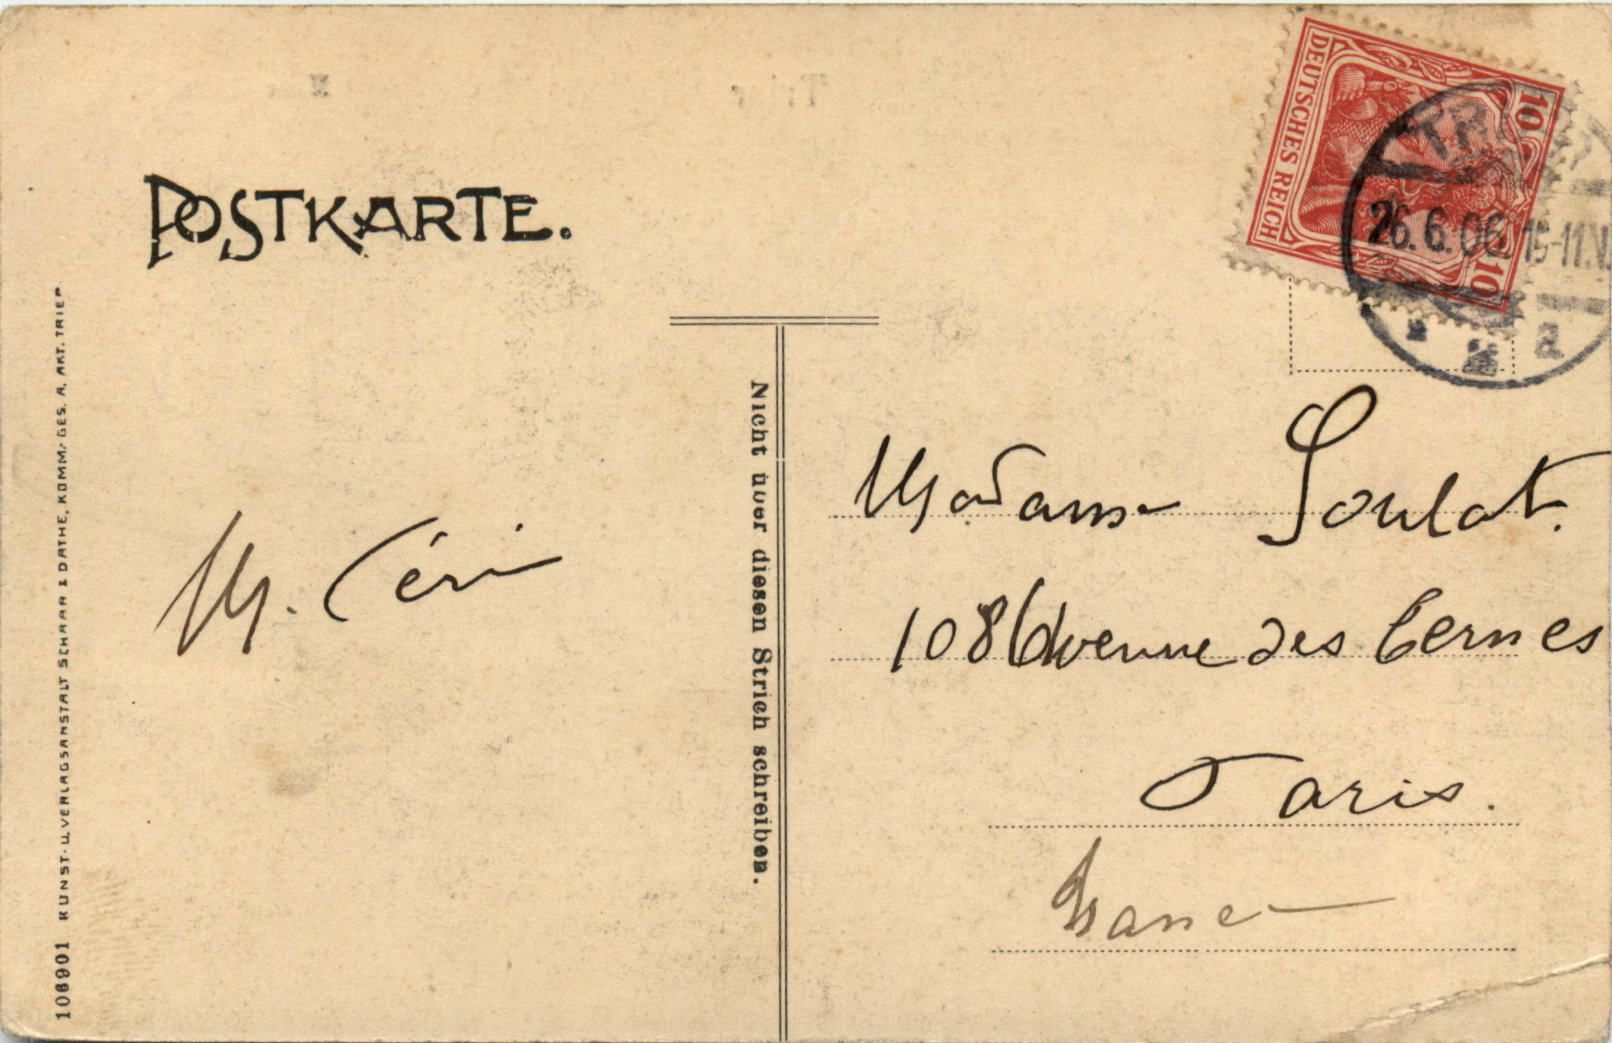 POSTKARTE.
DEUTSCHES REICH
10
10
26.6.06.
2 a
106901 KUNST- U. VERLAGSANSTALT SCHAAR & DATHE, KOMM. GES. A. AKT. TRIER
Nicht über diesen Strich schreiben.
Madame Soulat.
108 Avenue des Ternes
Paris.
France